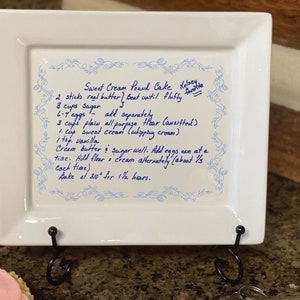 Sweet Cream Pound Cake
Kelsey
2 sticks real butter } Beat until fluffy
3 cups sugar
6-7 eggs - add separately
3 cups plain all purpose flour (unsifted)
1 cup sweet cream (whipping cream)
1 tsp. vanilla
Cream butter & sugar well. Add eggs one at a
time. Add flour & cream alternately (about 1/3
each time)
Bake at 310° for 1½ hours.